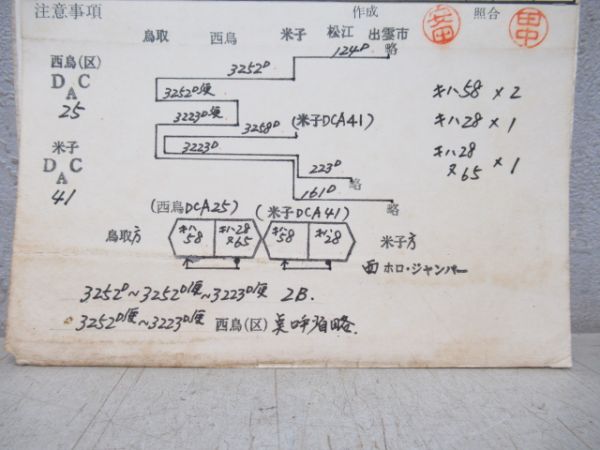 注意事項 作成 照合
鳥取 西鳥 米子 松江 出雲市
西鳥(区)
DAC
25
米子
DAC
41
124D 略
3252D
3252D便
3223D便
3258D (米子DCA41)
3223D
223D 略
161D 略
キハ58 × 2
キハ28 × 1
キハ28
ヌ65 × 1
(西鳥DCA25) (米子DCA41)
鳥取方 キハ58 キハ28ヌ65 キハ58 キハ28 米子方
ホロ・ジャンパー
3252D~3252D/便~3223D/便 2B.
3252D/便~3223D/便 西鳥(区) 点呼省略.
田中